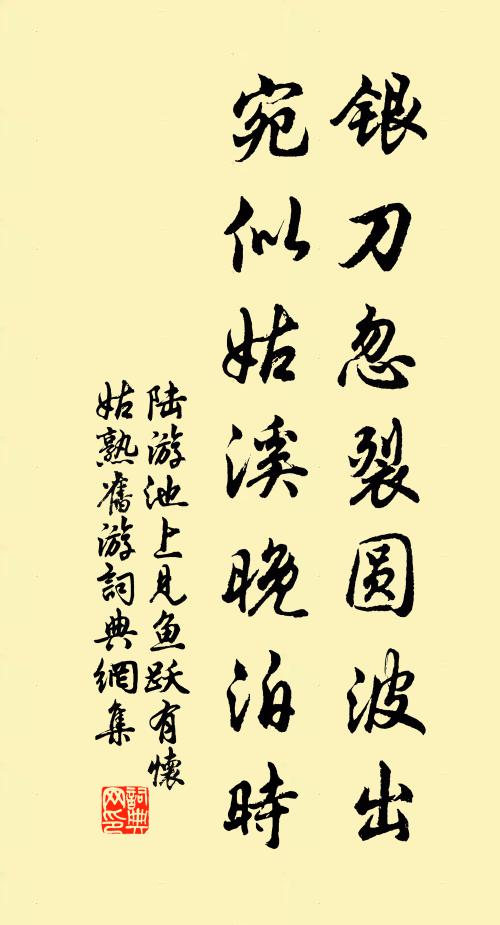 银刀忽裂圆波出
宛似姑溪晚泊時
陆游池上見魚跃有懷
姑熟舊游詞典網集
詞典网印